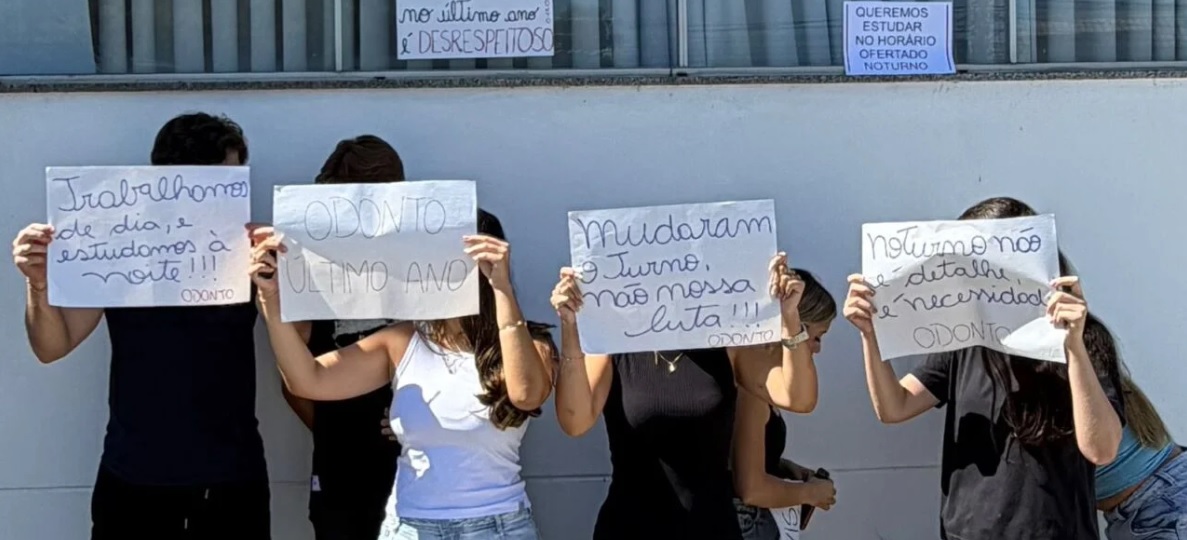 no último ano
é DESRESPEITOSO
QUEREMOS
ESTUDAR
NO HORÁRIO
OFERTADO
NOTURNO
Trabalhamos
de dia, e
estudamos à
noite!!!
ODONTO
ODONTO
ÚLTIMO ANO
Mudaram
o Turno,
não nossa
luta!!!
ODONTO
Noturno não
é detalhe
é necessidade
ODONTO